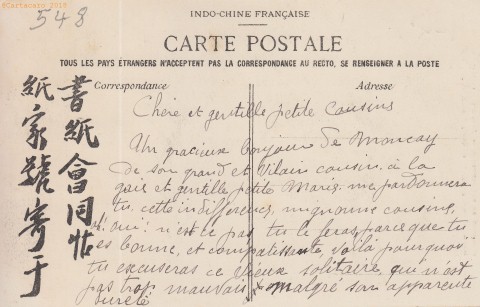 ©Cartacaro 2016
548
INDO-CHINE FRANÇAISE
CARTE POSTALE
TOUS LES PAYS ÉTRANGERS N'ACCEPTENT PAS LA CORRESPONDANCE AU RECTO, SE RENSEIGNER A LA POSTE
Correspondance
Adresse
書紙會同帖
紙家號寄于
Chère et gentille petite cousins
Un gracieux bonjour de Moncay
de son grand et vilain cousin à la
gaie et gentille petite Marie. me pardonnera
tu, cette indifférence, mignonne cousine,
oui n'est ce pas tu le feras, parce que tu
es bonne, et compatissante, voilà pourquoi
tu excuseras ce vieux solitaire, qui n'est
pas trop mauvais malgré son apparente
dureté